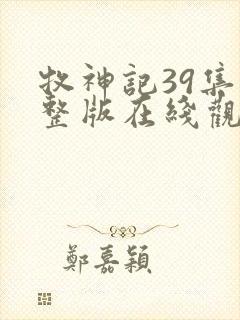 牧神記39集
整版在綫觀
鄭嘉穎